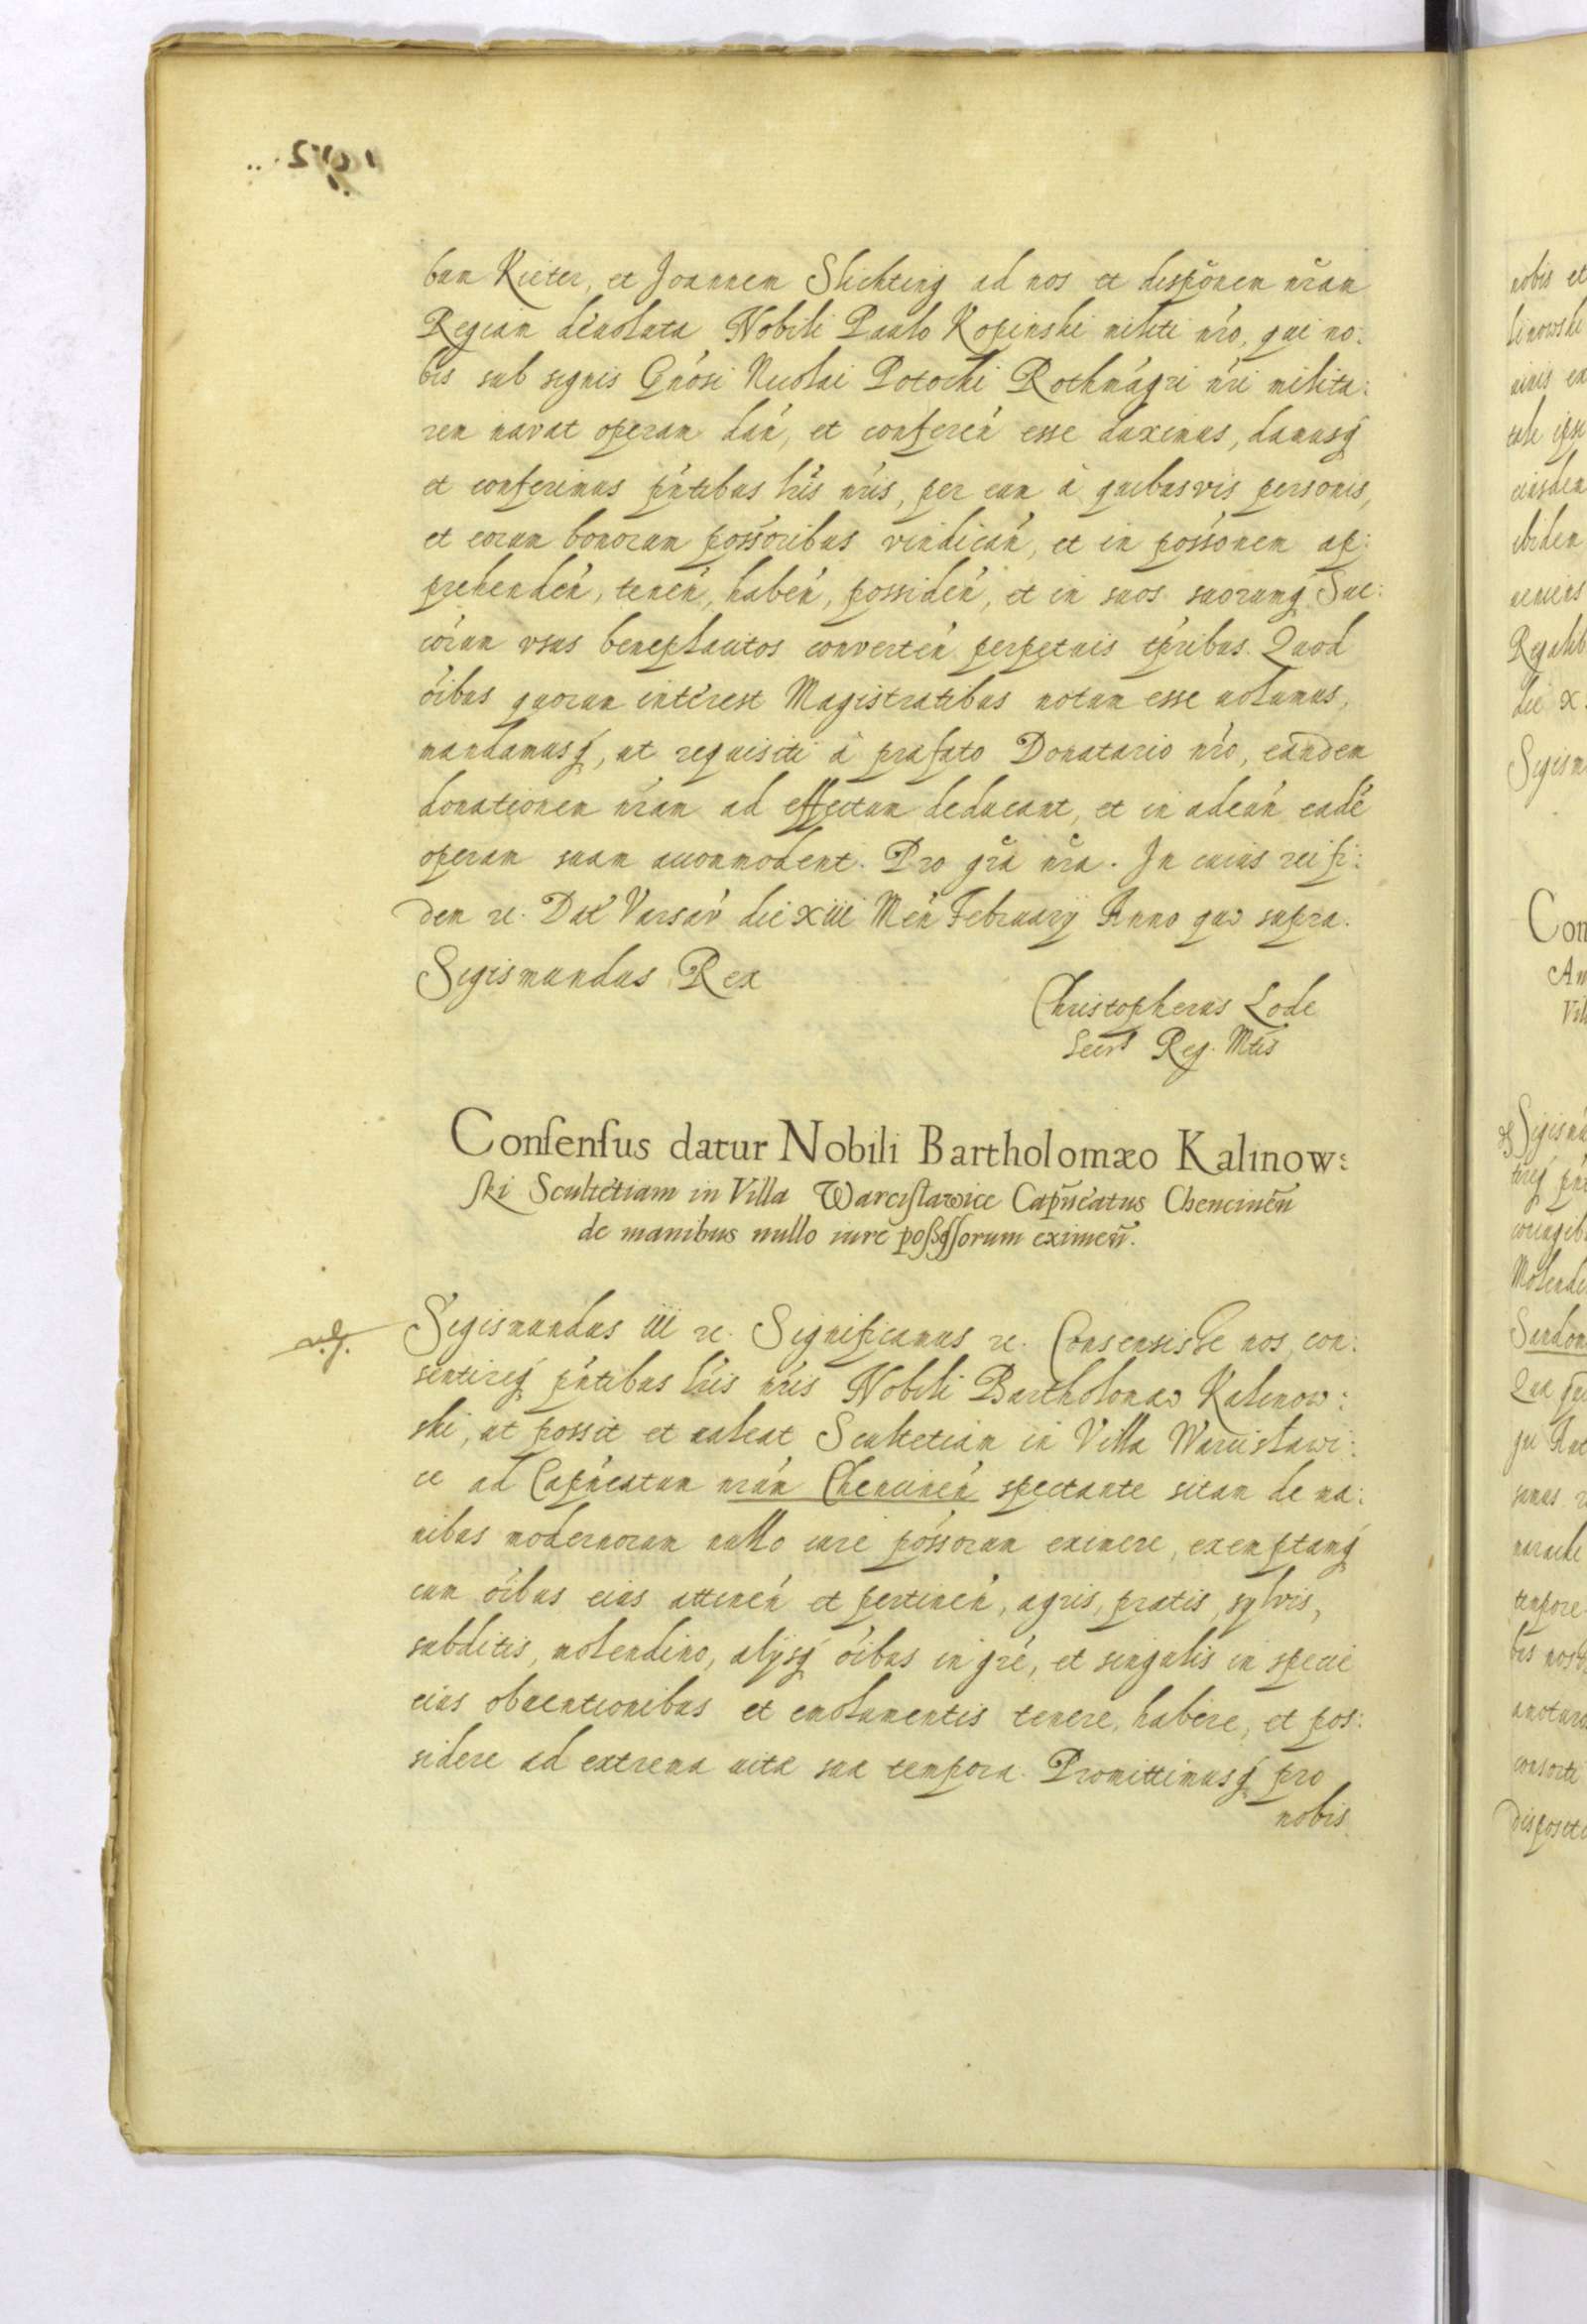 bum Kieter, et Joannem Slichting ad nos et dispõnem nr̃am
Regiam deuoluta Nobili Paulo Kopinski militi nr̃o, qui no:
bis sub signis Gnõsi Nicolai Potocki Rothmãgri nr̃i milita:
rem navat operam dañ, et confereñ esse duximus, damusq́
et conferimus pñtibus lr̃is nr̃is, per eum à quibusvis personis,
et eorum bonorum possõribus vindicañ, et in possõnem ap:
prehendeñ, teneñ, habeñ, possideñ, et in suos suorumq́ Suc:
cõrum vsus beneplacitos converteñ perpetuis tp̃ribus. Quod
õibus quorum interest Magistratibus notum esse uolumus,
mandamusq́, ut requisiti à præfato Donatario nr̃o, eandem
donationem nr̃am ad effectum deducant, et in adeuñ eadẽ
operam suam accommodent. Pro gr̃a nr̃a. In cuius rei fi:
dem ꝛc. Dat̃ Varsav̄ die xiii Meñ February Anno quo supra.
Sigismundus Rex
Christopherus Lode
Secrs Reg. Mtis
Consensus datur Nobili Bartholomæo Kalinow:
ski Scultetiam in Villa Warcislawice Capñeatus Chencineñ
de manibus nullo iure poßeßorum eximeñ.
Sigismundus iii ꝛc. Significamus ꝛc. Consensisse nos, con:
sentireq́ pñtibus lr̃is nr̃is Nobili Bartholomæo Kalinow:
ski, ut possit et ualeat Scultetiam in Villa Warcislawi:
ce ad Capñeatum nr̃um Chencineñ spectante sitam de ma:
nibus modernorum nullo iure possõrum eximere, exemptamq́
cum õibus eius attineñ et pertineñ, agris, pratis, sylvis,
subditis, molendino, alijsq́ õibus in grẽ, et singulis in specie
eius obuentionibus et emolumentis tenere, habere, et pos:
sidere ad extrema uitæ suæ tempora. Promittimusq́ pro
nobis